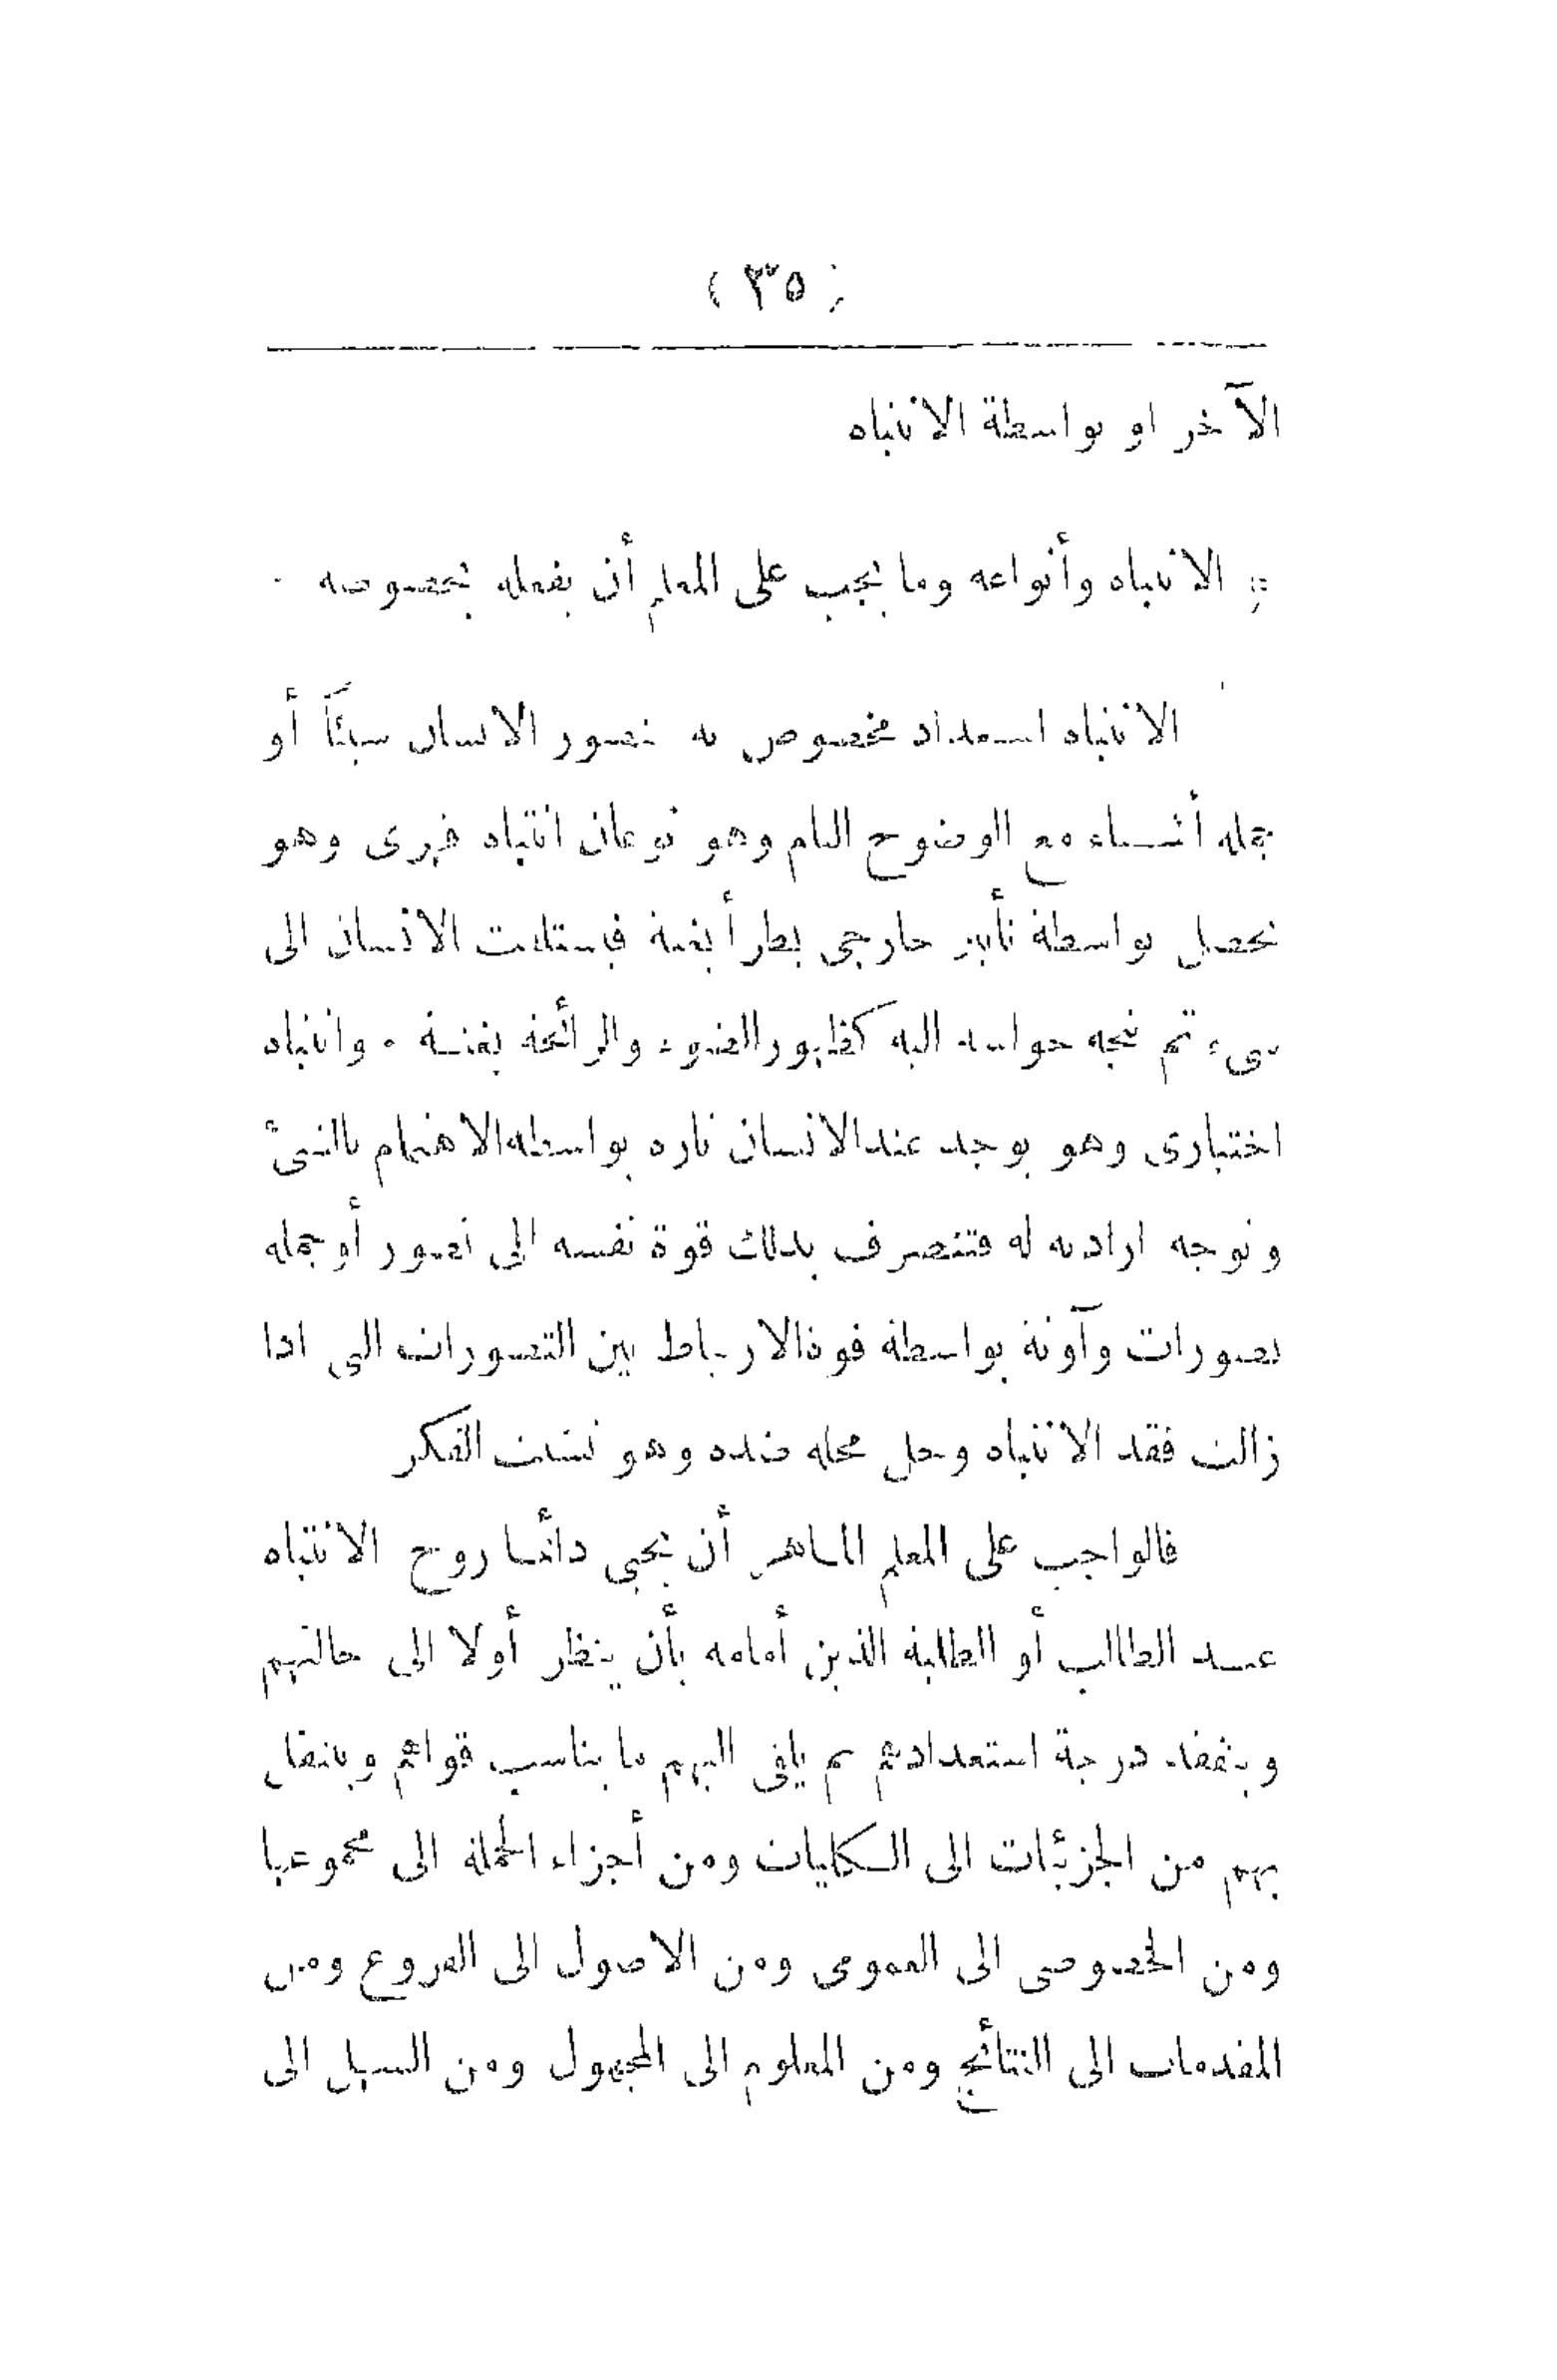 ( ٣٥ )
الآخر او بواسطة الانتباه
الانتباه وأنواعه وما يجب على المعلم أن يفعله بخصوصه
الانتباه استعداد مخصوص به يتصور الانسان شيئاً أو
جملة أشياء مع الوضوح التام وهو نوعان انتباه قهرى وهو
يحصل بواسطة تأثير خارجى يطرأ بغتة فيستلفت الانسان الى
شىء ثم تتجه حواسه اليه كظهور الضوء والرائحة بغتة . وانتباه
اختيارى وهو يوجد عند الانسان تارة بواسطة الاهتمام بالشئ
وتوجه ارادته له فتنصرف بذلك قوة نفسه الى تصور أو جملة
تصورات وآونة بواسطة قوة الارتباط بين التصورات التى اذا
زالت فقد الانتباه وحل محله ضده وهو تشتت الفكر
فالواجب على المعلم الماهر أن يحيى دائما روح الانتباه
عند الطالب أو الطلبة الذين أمامه بأن ينظر أولا الى حالتهم
ويتفقد درجة استعدادهم ثم يلقى اليهم ما يناسب قواهم وينتقل
بهم من الجزئيات الى الكليات ومن أجزاء الجملة الى مجموعها
ومن الخصوصى الى العمومى ومن الاصول الى الفروع ومن
المقدمات الى النتائج ومن المعلوم الى المجهول ومن السهل الى